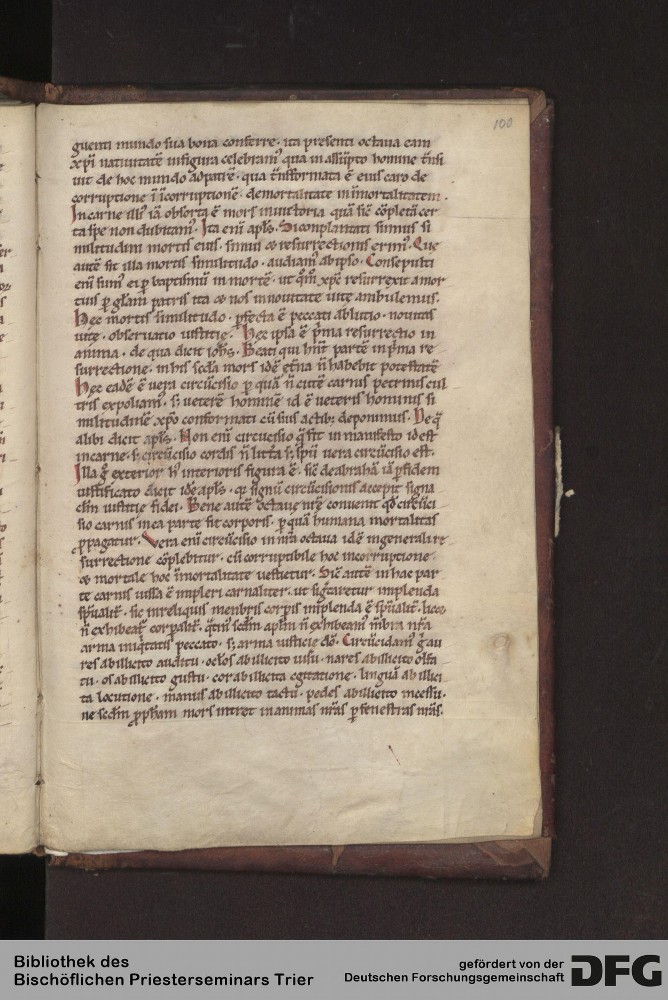 100
guenti mundo sua bona conferre · ita presenti octaua eam
xp̄i natiuitatē in figura celebram᷒ qua in assūpto homine t̄nsi
uit de hoc mundo ad patrē · qua t̄nsformata ē eius caro de
corruptione ī īcorruptionē · de mortalitate in īmortalitatem ·
In carne illi᷒ iā absorta ē mors in uictoria quā sic̄ cōpletā cer
ta spe non dubitam᷒ · Ita eni᷒ apl̄s · Si complantati sumus si
militudini mortis eius · simul ⁊ resurrectionis erim᷒ · Que
autē sit illa mortis similitudo · audiam᷒ ab ipso · Consepulti
eni᷒ sum᷒ ei ꝑ baptismū in mortē · ut qm̄ xp̄c resurrexit a mor
tuis ꝑ gl̄am patris ita ⁊ nos in nouitate uite ambulemus ·
Hec mortis similitudo · ꝑfecta ē peccati ablutio · nouitas
uite · obseruatio iustitie · Hec ipsa ē p̄ma resurrectio in
anima · de qua dicit ioh̄s · Beati qui hn̄t partē in p̄ma re
surrectione · in his sc̄da mors idē et̄na n̄ habebit potestatē
Hec eadē ē uera circūcisio ꝑ quā n̄ cutē carnis petrinis cul
tris expoliam᷒ · s; ueterē hominē id ē ueteris hominis si
militudinē xp̄o conformati cū suis actib; deponimus · De q̄
alibi dicit apl̄s · Non eni᷒ circūcisio q̄ fit in manifesto id est
in carne · s; circūcisio cordis n̄ litt̄a s; sp̄u uera circūcisio est ·
Illa g̊ exterior hui᷒ interioris figura ē · sic̄ de abrahā iā ꝑ fidem
iustificato dicit idē apl̄s · qr signū circūcisionis accepit signa
cl̄m iustitie fidei · Bene autē octaue nr̄e conuenit qd̄ circūci
sio carnis in ea parte fit corporis · ꝑ quā humana mortalitas
ꝓpagatur · Vera eni᷒ circūcisio in nr̄a octaua idē in generali re
surrectione cōplebitur · cū corruptibile hoc incorruptione ·
⁊ mortale hoc īmortalitate uestietur · Sic̄ autē in hac par
te carnis iussa ē impleri carnaliter · ut sig̅aretur implenda
sp̄ualit̄ · sic in reliquis menbris corpis implenda ē sp̄ualit̄ · licet
n̄ exhibeat᷒ corpalit̄ · q̄tin᷒ scd̄m aplm̄ n̄ exhibeam᷒ m̄bra nr̄a
arma iniq̄tatis peccato · s; arma iusticie dō · Circūcidam᷒ g̊ au
res ab illicito auditu · oc̄los ab illicito uisu · nares ab illicito olfa
tu · os ab illicito gustu · cor ab illicita cgitatione · linguā ab illici
ta locutione · manus ab illicito tactu · pedes ab illicito incessu ·
ne scd̄m ꝓph̄am mors intret in animas nr̄as ꝑ fenestras nr̄as ·
Bibliothek des
Bischöflichen Priesterseminars Trier
gefördert von der
Deutschen Forschungsgemeinschaft
DFG